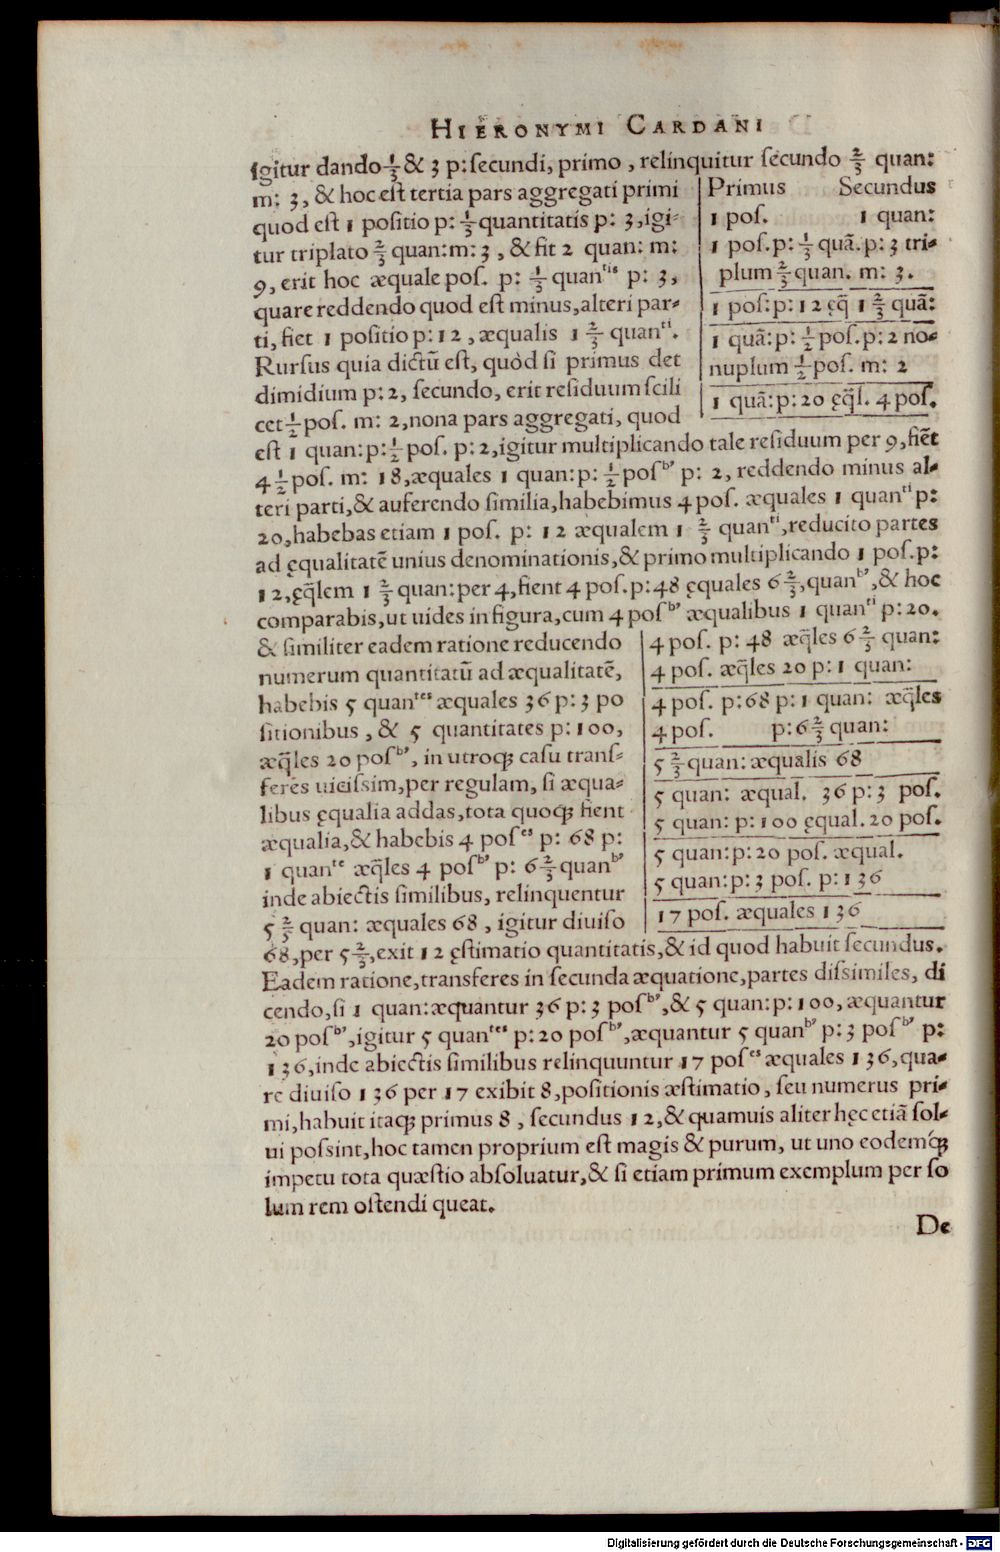 HIERONYMI CARDANI
igitur dando 1/3 & 3 p: secundi, primo, relinquitur secundo 2/3 quan:
m: 3, & hoc est tertia pars aggregati primi
quod est 1 positio p: 1/3 quantitatis p: 3, igi-
tur triplato 2/3 quan: m: 3, & fit 2 quan: m:
9, erit hoc æquale pos. p: 1/3 quanᵗⁱˢ p: 3,
quare reddendo quod est minus, alteri par-
ti, fiet 1 positio p: 12, æqualis 1 2/3 quanᵗⁱ.
Rursus quia dictũ est, quòd si primus det
dimidium p: 2, secundo, erit residuum scili
cet 1/2 pos. m: 2, nona pars aggregati, quod
Primus Secundus
1 pos. 1 quan:
1 pos. p: 1/3 quã. p: 3 tri-
plum 2/3 quan. m: 3.
1 pos: p: 12 ęq̃ 1 2/3 quã:
1 quã: p: 1/2 pos. p: 2 no-
nuplum 1/2 pos. m: 2
1 quã: p: 20 ęq̃l. 4 pos.
est 1 quan: p: 1/2 pos. p: 2, igitur multiplicando tale residuum per 9, fiẽt
4 1/2 pos. m: 18, æquales 1 quan: p: 1/2 posᵇ' p: 2, reddendo minus al-
teri parti, & auferendo similia, habebimus 4 pos. æquales 1 quanᵗⁱ p:
20, habebas etiam 1 pos. p: 12 æqualem 1 2/3 quanᵗⁱ, reducito partes
ad ęqualitatẽ unius denominationis, & primo multiplicando 1 pos. p:
12, ęq̃lem 1 2/3 quan: per 4, fient 4 pos. p: 48 ęquales 6 2/3, quanᵇ', & hoc
comparabis, ut uides in figura, cum 4 posᵇ' æqualibus 1 quanᵗⁱ p: 20.
& similiter eadem ratione reducendo
numerum quantitatũ ad æqualitatẽ,
habebis 5 quanᵗᵉˢ æquales 36 p: 3 po
sitionibus, & 5 quantitates p: 100,
æq̃les 20 posᵇ', in utroq; casu trans-
feres uicissim, per regulam, si æqua-
libus ęqualia addas, tota quoq; fient
æqualia, & habebis 4 posᵉˢ p: 68 p:
1 quanᵗᵉ æq̃les 4 posᵇ' p: 6 2/3 quanᵇ'
inde abiectis similibus, relinquentur
5 2/3 quan: æquales 68, igitur diuiso
4 pos. p: 48 æq̃les 6 2/3 quan:
4 pos. æq̃les 20 p: 1 quan:
4 pos. p: 68 p: 1 quan: æq̃les
4 pos. p: 6 2/3 quan:
5 2/3 quan: æqualis 68
5 quan: æqual. 36 p: 3 pos.
5 quan: p: 100 ęqual. 20 pos.
5 quan: p: 20 pos. æqual.
5 quan: p: 3 pos. p: 136
17 pos. æquales 136
68, per 5 2/3, exit 12 ęstimatio quantitatis, & id quod habuit secundus.
Eadem ratione, transferes in secunda æquatione, partes dissimiles, di
cendo, si 1 quan: æquantur 36 p: 3 posᵇ', & 5 quan: p: 100, æquantur
20 posᵇ', igitur 5 quanᵗᵉˢ p: 20 posᵇ', æquantur 5 quanᵇ' p: 3 posᵇ' p:
136, inde abiectis similibus relinquuntur 17 posᵉˢ æquales 136, qua-
re diuiso 136 per 17 exibit 8, positionis æstimatio, seu numerus pri-
mi, habuit itaq; primus 8, secundus 12, & quamuis aliter hęc etiã sol-
ui possint, hoc tamen proprium est magis & purum, ut uno eodemq́;
impetu tota quæstio absoluatur, & si etiam primum exemplum per so
lum rem ostendi queat.
De
Digitalisierung gefördert durch die Deutsche Forschungsgemeinschaft - DFG